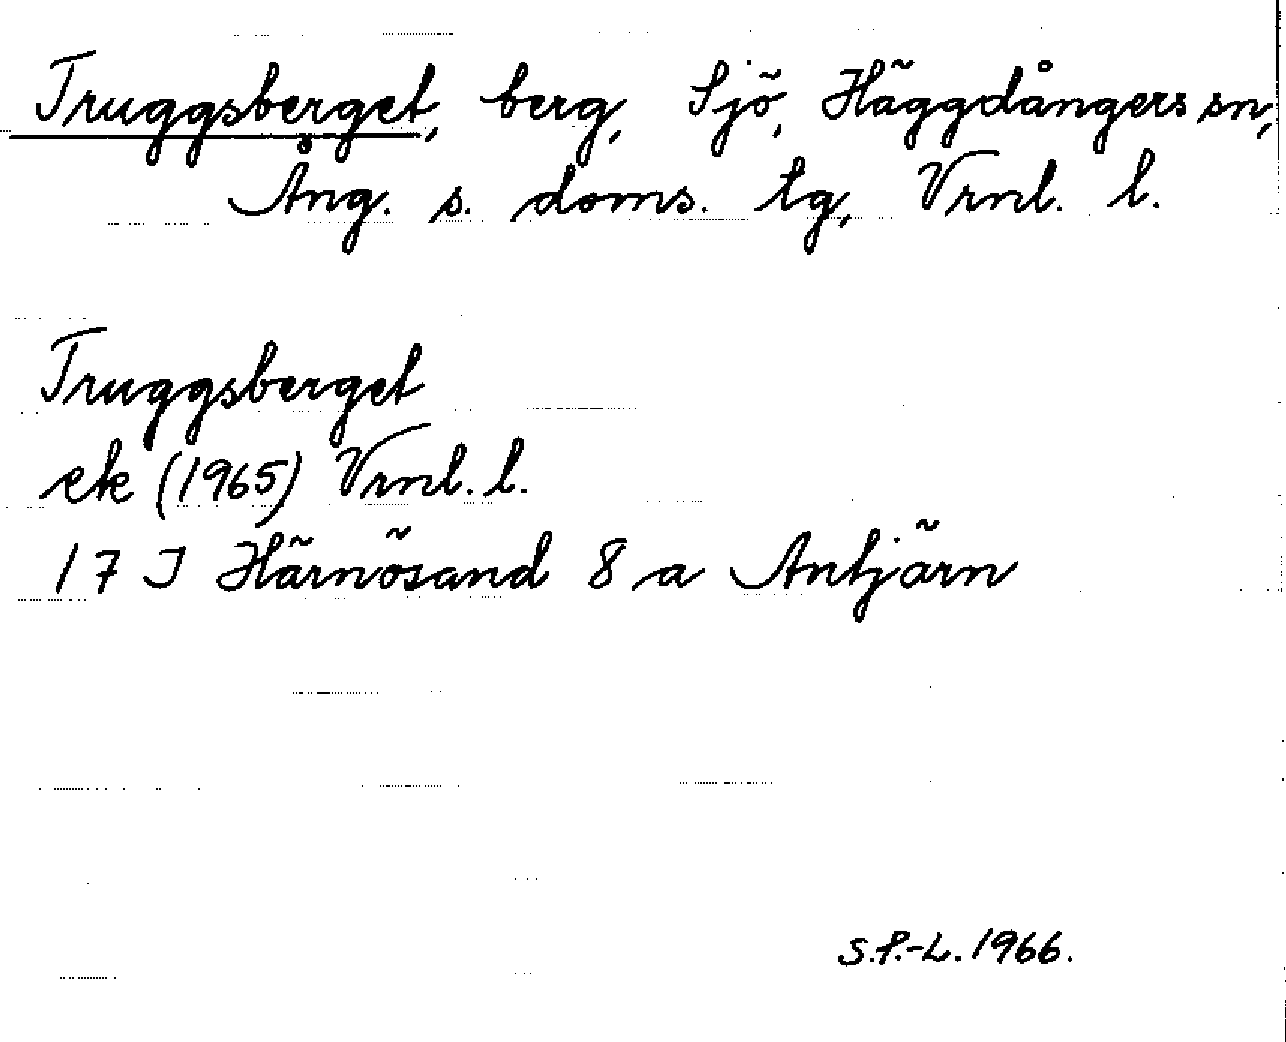 Truggsberget, berg, Sjö, Häggdångers sn,
Ång. s. doms. tg, Vrnl. l.
Truggsberget
ek (1965) Vrnl. l.
17 I Härnösand 8 a Antjärn
S.P.-L. 1966.